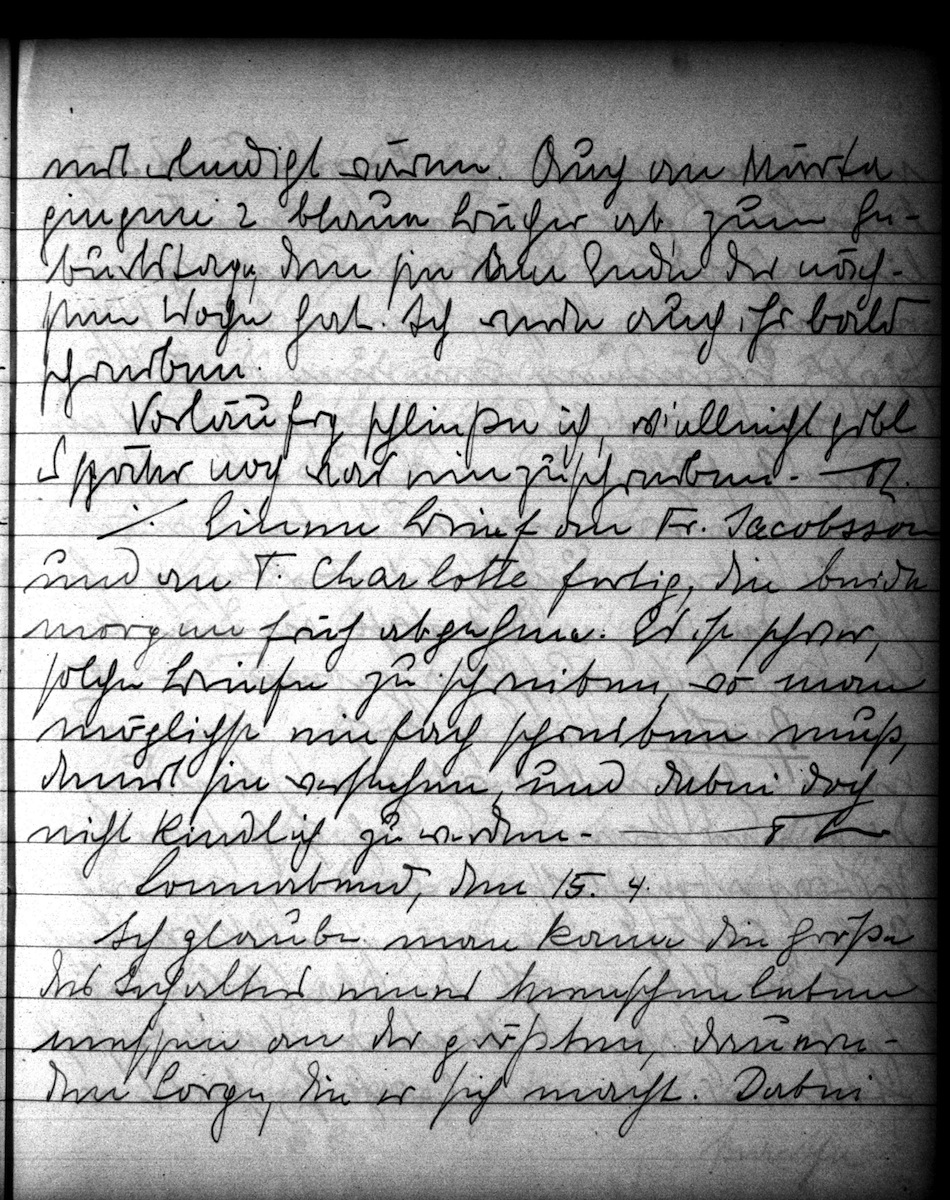 mit erledigt wären. Auch an Märta
gingen 2 blaue Bücher ab, zum Ge-
burtstage, den sie am Ende der näch-
sten Woche hat. Ich werde auch ihr bald
schreiben.
Vorläufig schließe ich, vielleicht gibt
später noch was einzuschreiben. —
⁒ Einen Brief an Fr. Jacobsson
und an T. Charlotte fertig, die beide
morgen früh abgehen. Es ist schwer,
solche Briefe zu schreiben, wo man
möglichst einfach schreiben muß,
damit sie verstehen, und dabei doch
nicht kindlich zu werden. —
Sonnabend, den 15. 4.
Ich glaube man kann die Größe
des Inhaltes eines Menschenleben
messen an der größten, dauern-
den Sorge, die er sich macht. Dabei